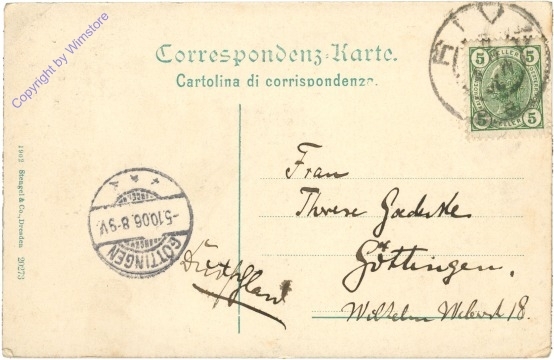 Copyright by Wimstore
Correspondenz-Karte.
Cartolina di corrispondenza.
5 HELLER 5
5 HELLER 5
RIVA
1902 Stengel & Co., Dresden 20273
GÖTTINGEN
-5.10.06.8-9V.
Frau
Therese Goedeke
Göttingen.
Deutschland
Wilhelm Weberstr 18.